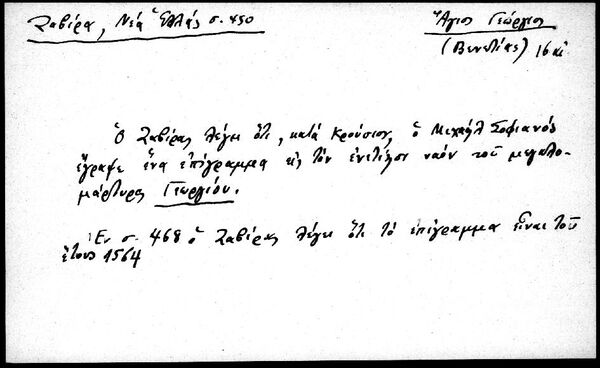 Ζαβίρα, Νέα Ἑλλάς σ. 450
Ἅγιος Γεώργιος
(Βενετίας) 16 αἰ
Ὁ Ζαβίρας λέγει ὅτι, κατά Κρούσιον, ὁ Μιχαήλ Σοφιανός
ἔγραψε ἕνα ἐπίγραμμα εἰς τόν ἐνετίῃσι ναόν τοῦ μεγαλο-
μάρτυρος Γεωργίου.
Ἐν σ. 468 ὁ Ζαβίρας λέγει ὅτι τό ἐπίγραμμα εἶναι τοῦ
ἔτους 1564